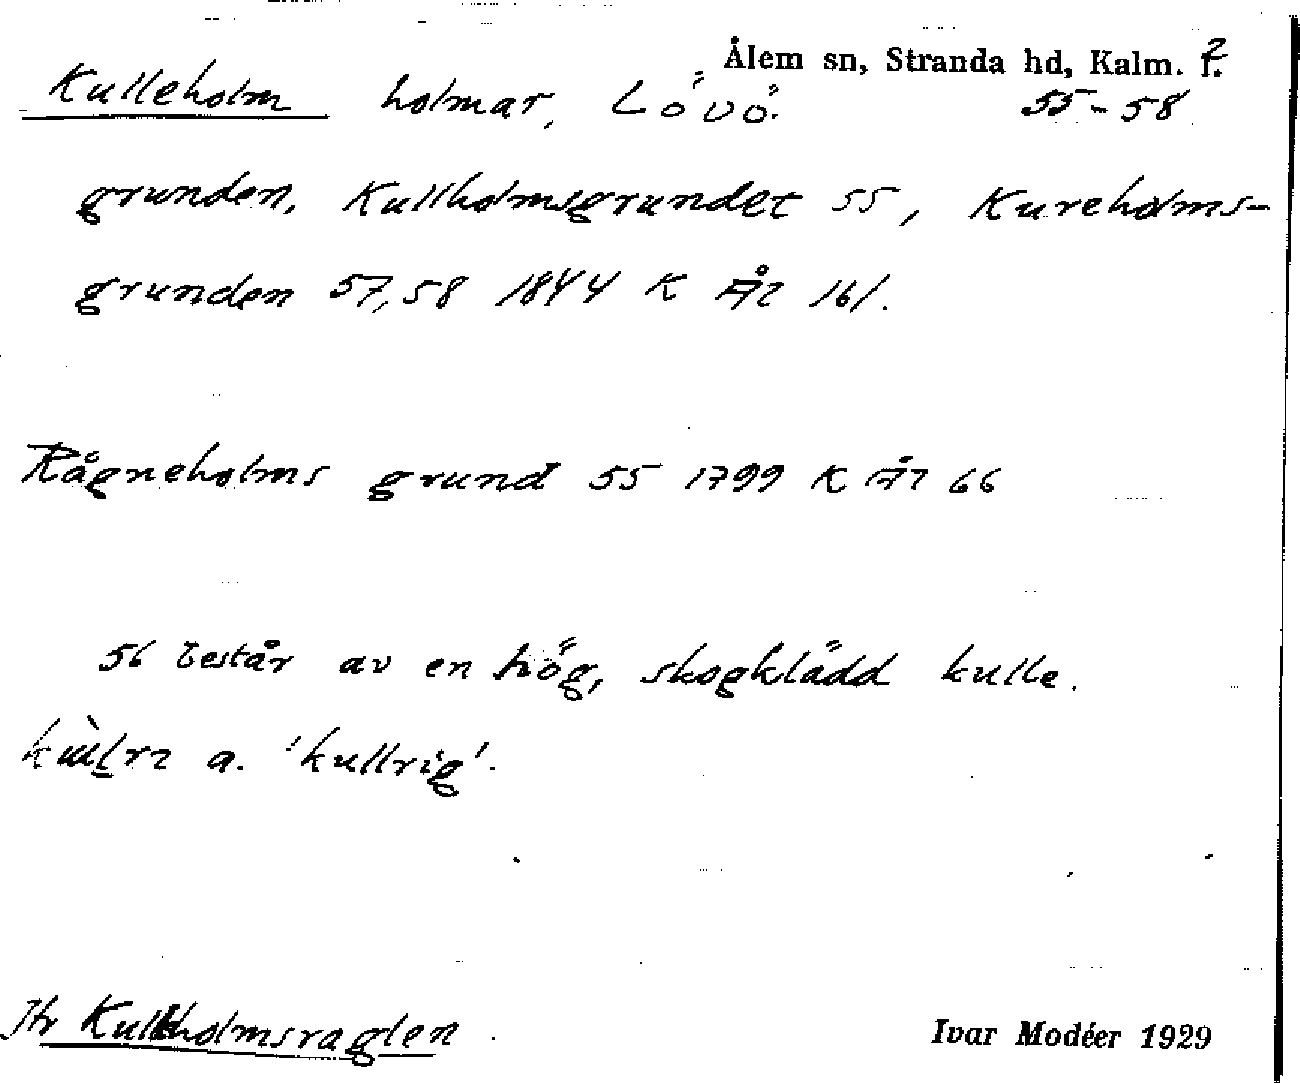 Ålem sn, Stranda hd, Kalm. l. 2
Kulleholm holmar, Lövö. 55-58
grunden, Kullholmsgrundet 55, Kureholms-
grunden 57, 58 1844 K ÅZ 161.
Rågneholms grund 55 1799 K ÅZ 66
56 består av en hög, skogklädd kulle.
a. 'kullrig'.
Jfr Kullholmsraglen.
Ivar Modéer 1929